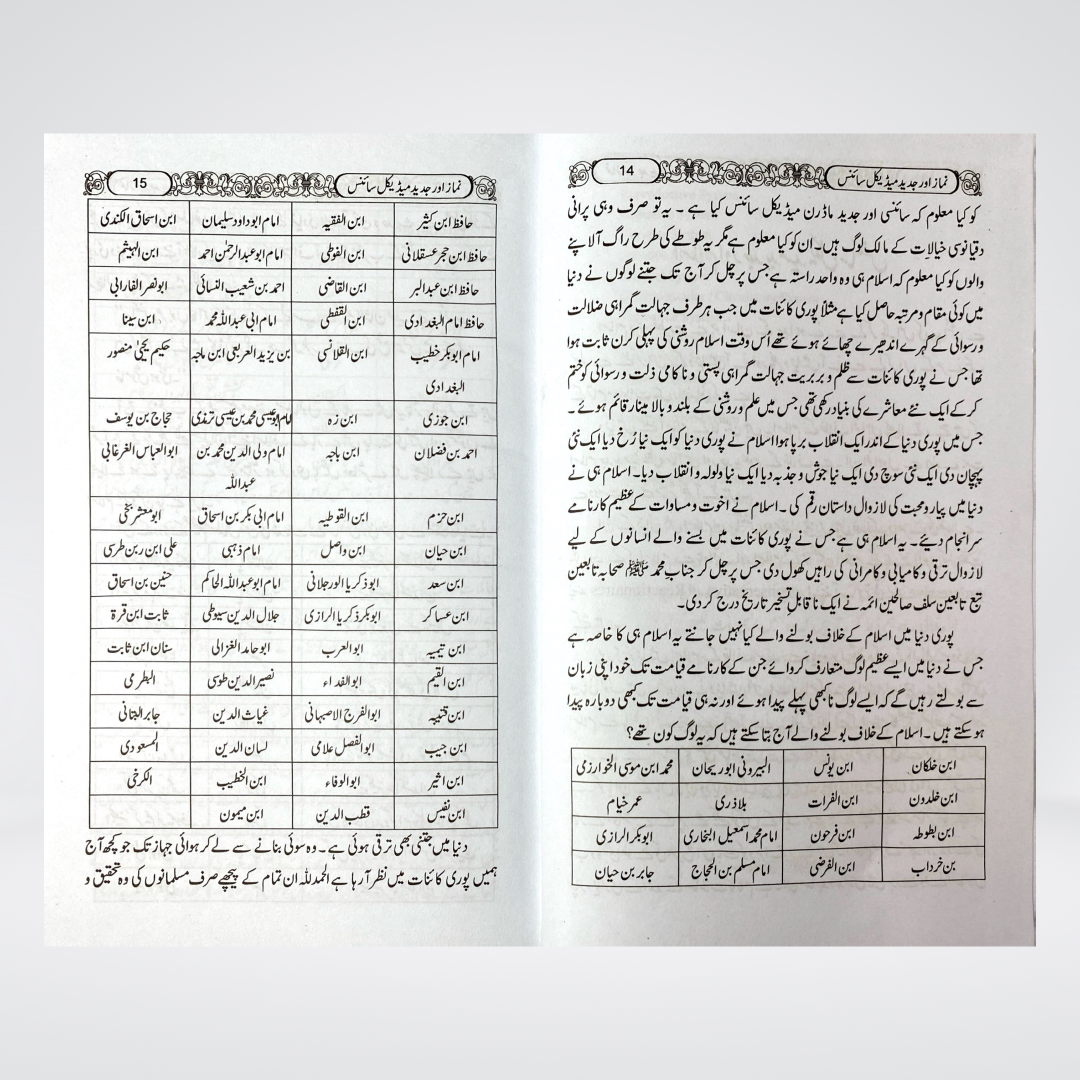 نماز اور جدید میڈیکل سائنس 14
کو کیا معلوم کہ سائنسی اور جدید ماڈرن میڈیکل سائنس کیا ہے ۔ یہ تو صرف وہی پرانی
دقیانوسی خیالات کے مالک لوگ ہیں۔ ان کو کیا معلوم ہے مگر یہ طوطے کی طرح راگ آلاپنے
والوں کو کیا معلوم کہ اسلام ہی وہ واحد راستہ ہے جس پر چل کر آج تک جتنے لوگوں نے دنیا
میں کوئی مقام و مرتبہ حاصل کیا ہے مثلاً پوری کائنات میں جب ہر طرف جہالت گمراہی ضلالت
و رسوائی کے گہرے اندھیرے چھائے ہوئے تھے اُس وقت اسلام روشنی کی پہلی کرن ثابت ہوا
تھا جس نے پوری کائنات سے ظلم و بربریت جہالت گمراہی پستی و ناکامی ذلت و رسوائی کو ختم
کر کے ایک نئے معاشرے کی بنیاد رکھی تھی جس میں علم و روشنی کے بلند و بالا مینار قائم ہوئے ۔
جس میں پوری دنیا کے اندر ایک انقلاب برپا ہوا اسلام نے پوری دنیا کو ایک نیا رُخ دیا ایک نئی
پہچان دی ایک نئی سوچ دی ایک نیا جوش و جذبہ دیا ایک نیا ولولہ و انقلاب دیا۔ اسلام ہی نے
دنیا میں پیار و محبت کی لازوال داستان رقم کی ۔ اسلام نے اخوت و مساوات کے عظیم کارنامے
سر انجام دیئے ۔ یہ اسلام ہی ہے جس نے پوری کائنات میں بسنے والے انسانوں کے لیے
لازوال ترقی و کامیابی و کامرانی کی راہیں کھول دی جس پر چل کر جنابِ محمد ﷺ صحابہ تابعین
تبع تابعین سلف صالحین ائمہ نے ایک ناقابلِ تسخیر تاریخ درج کر دی۔
پوری دنیا میں اسلام کے خلاف بولنے والے کیا نہیں جانتے یہ اسلام ہی کا خاصہ ہے
جس نے دنیا میں ایسے عظیم لوگ متعارف کروائے جن کے کارنامے قیامت تک خود اپنی زبان
سے بولتے رہیں گے کہ ایسے لوگ نا بھی پہلے پیدا ہوئے اور نہ ہی قیامت تک کبھی دوبارہ پیدا
ہو سکتے ہیں۔ اسلام کے خلاف بولنے والے آج بتا سکتے ہیں کہ یہ لوگ کون تھے؟
ابن خلکان ابن یونس البیرونی ابوریحان محمد ابن موسی الخوارزمی
ابن خلدون ابن الفرات بلاذری عمر خیام
ابن بطوطہ ابن فرحون امام محمد اسمعیل البخاری ابوبکر الرازی
بن خرداب ابن الفرضی امام مسلم بن الحجاج جابر بن حیان
نماز اور جدید میڈیکل سائنس 15
حافظ ابن کثیر ابن الفقیہ امام ابوداود سلیمان ابن اسحاق الکندی
حافظ ابن حجر عسقلانی ابن الفوطی امام ابوعبدالرحمٰن احمد ابن الہیثم
حافظ ابن عبدالبر ابن القاضی احمد بن شعیب النسائی ابونصر الفارابی
حافظ امام البغدادی ابن القفطی امام ابی عبداللہ محمد ابن سینا
امام ابوبکر خطیب ابن القلانسی بن یزید العربعی ابن ماجہ حکیم یحیٰ منصور
البغدادی
ابن جوزی ابن زہ امام ابوعیسیٰ محمد بن عیسی ترمذی حجاج بن یوسف
احمد بن فضلان ابن باجہ امام ولی الدین محمد بن ابوالعباس الفرغانی
عبداللہ
ابن حزم ابن القوطیہ امام ابی بکر بن اسحاق ابومعشر بلخی
ابن حیان ابن واصل امام ذہبی علی ابن ربن طرسی
ابن سعد ابوذکریا الورجلانی امام ابوعبداللہ الحاکم حنین بن اسحاق
ابن عساکر ابوبکر ذکریا الرازی جلال الدین سیوطی ثابت ابن قرۃ
ابن تیمیہ ابوالعرب ابوحامد الغزالی سنان ابن ثابت
ابن القیم ابوالفداء نصیر الدین طوسی البطرمی
ابن قتیبہ ابوالفرج الاصبہانی غیاث الدین جابر البتانی
ابن جیب ابوالفصل علامی لسان الدین المسعودی
ابن اثیر ابوالوفاء ابن الخطیب الکرخی
ابن نفیس قطب الدین ابن میمون
دنیا میں جتنی بھی ترقی ہوئی ہے ۔ وہ سوئی بنانے سے لے کر ہوائی جہاز تک جو کچھ آج
ہمیں پوری کائنات میں نظر آ رہا ہے الحمدللہ ان تمام کے پیچھے صرف مسلمانوں کی وہ تحقیق و